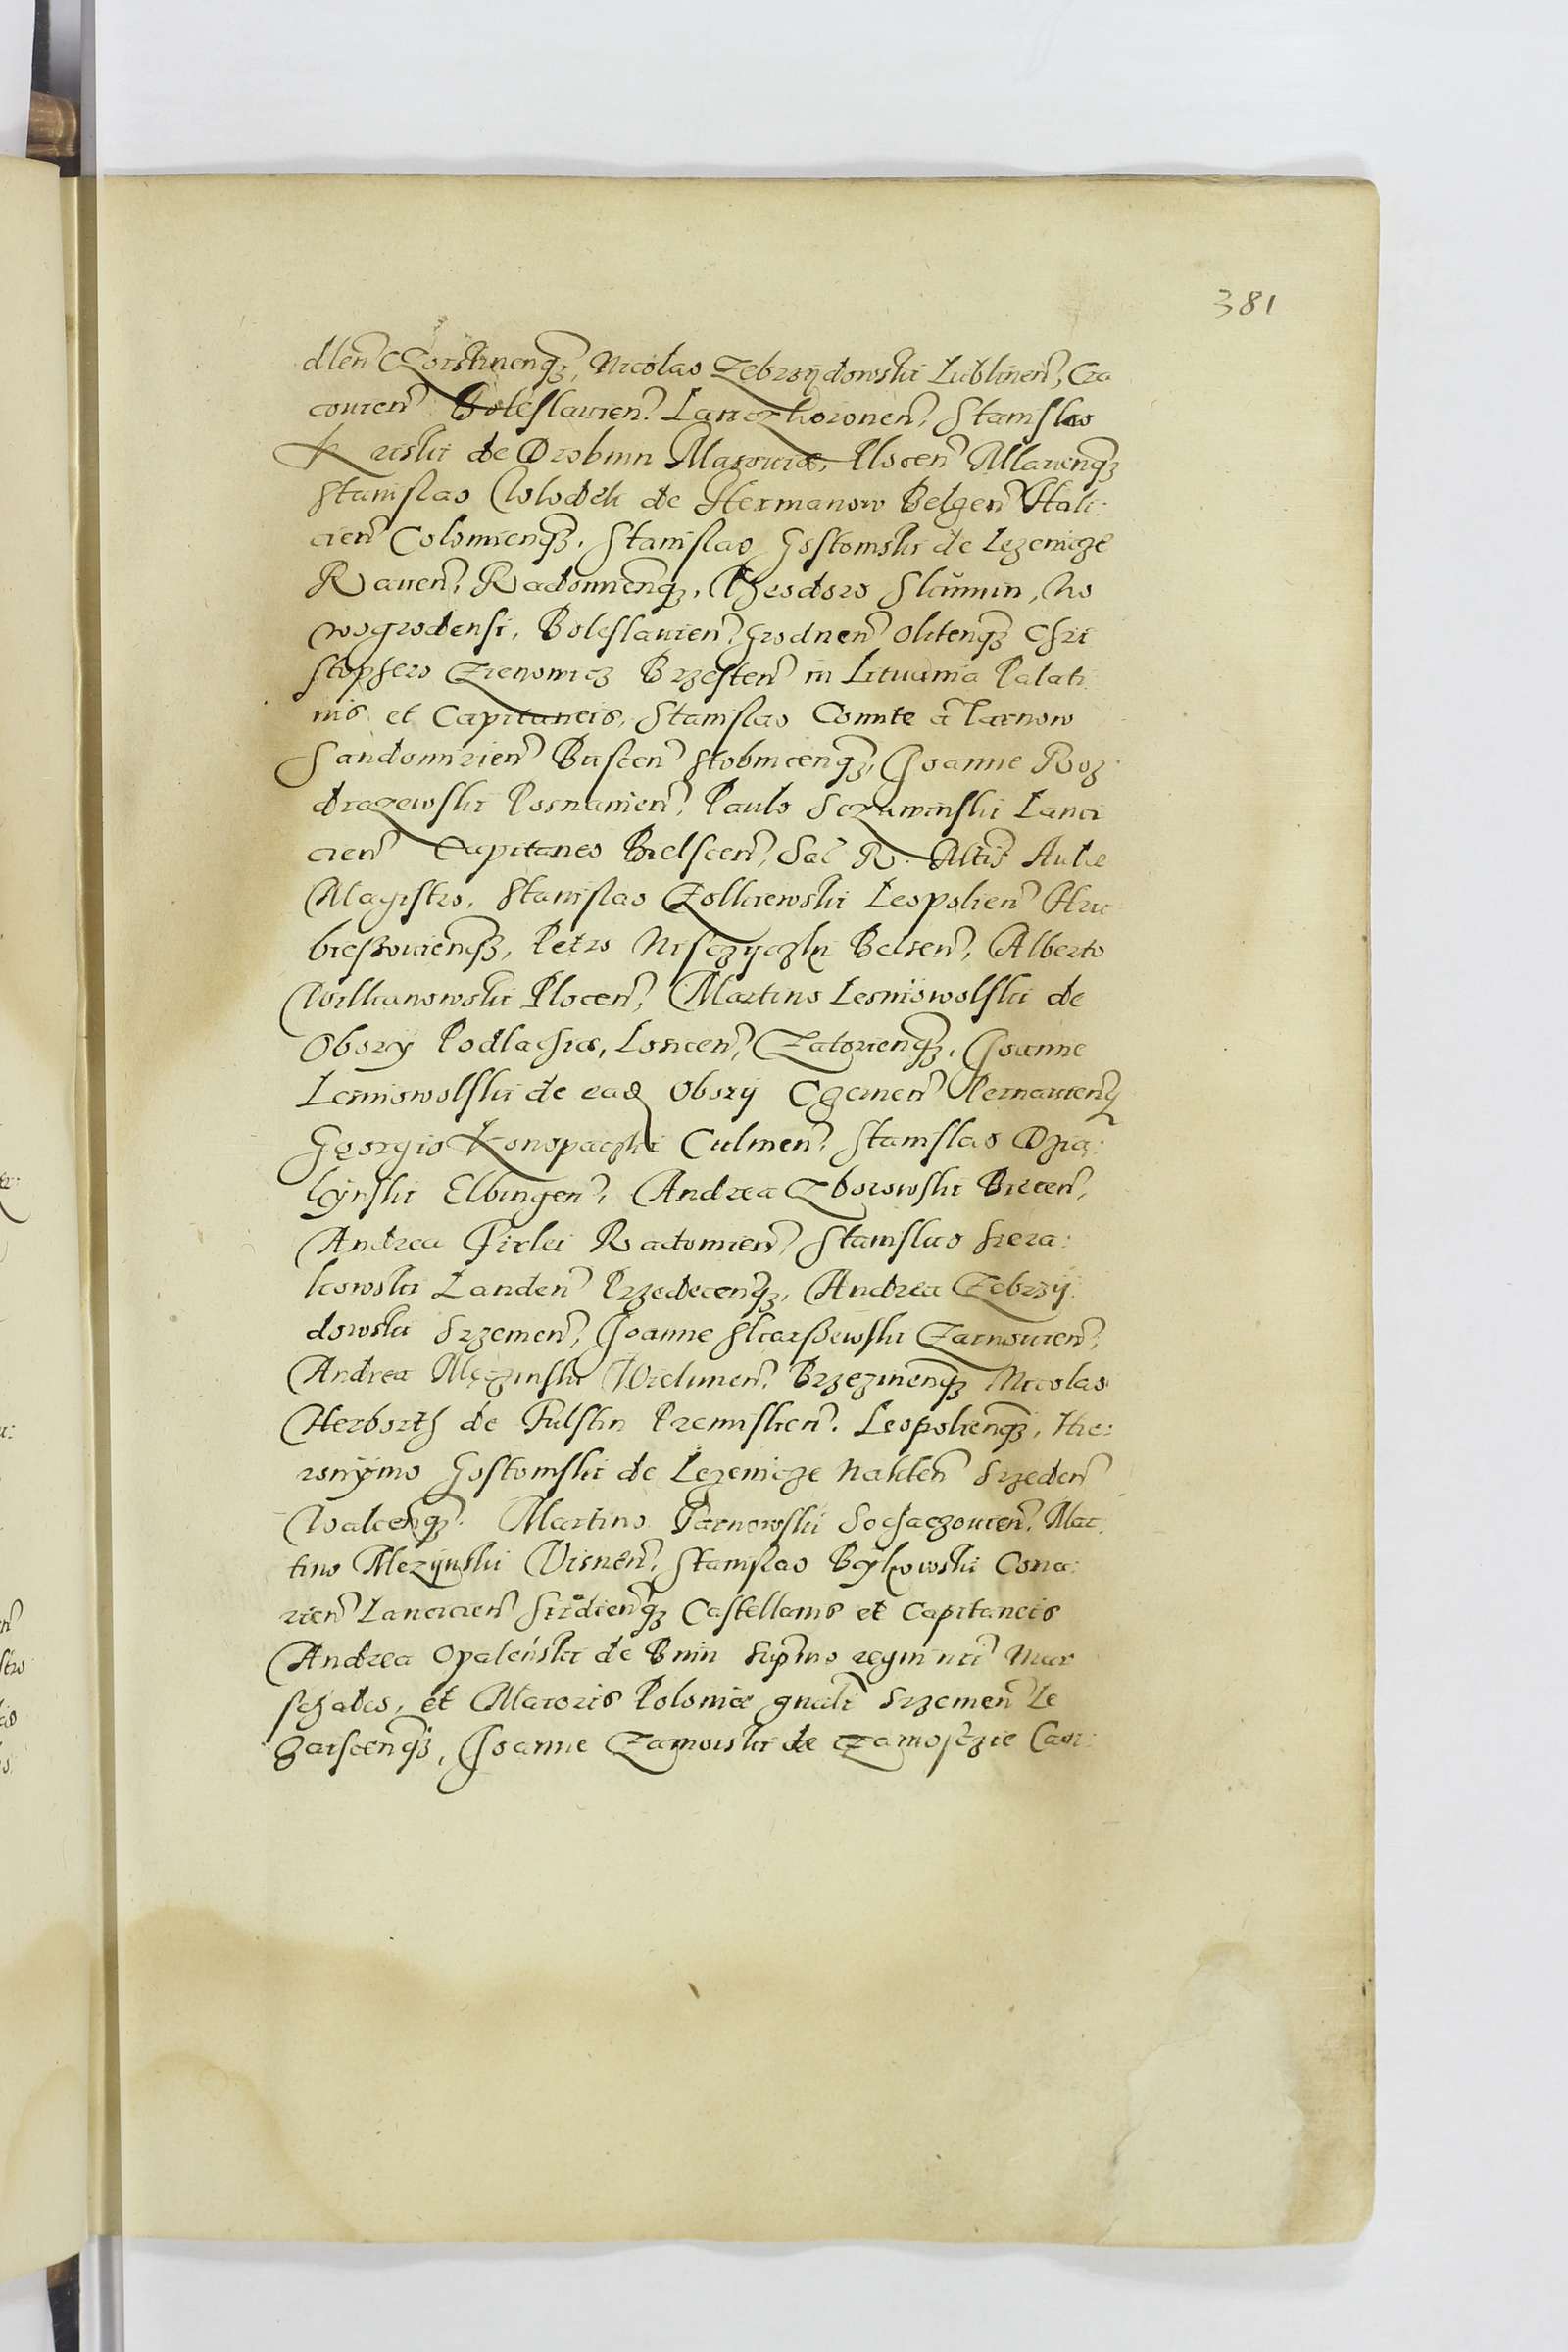 381
dlen Czorstinenq3, Nicolao Zebrzÿdowski Lublinen, Cra
covien Boleslavien. Lanczkoronen, Stanislao
Kriski de Drobnin Masoviæ, Plocen Mlavenq3
Stanislao Wlodek de Hermanow Belzen Hali:
cien Colomienq3. Stanislao Gostomski de Lezenicze
Raven, Radomienq3, Theodoro Skumin, No
wogrodensi, Boleslavien, Grodnen Olitenq3 Chri
stophero Zienowicz Brzesten in Lituania Palati
nis et Capitaneis, Stanislao Comite à Tarnow
Sandomirien Buscen Stobnicenq3, Joanne Roz:
drazewski Posnanien, Paulo Sczawinski Lanci
cien Capitaneo Bielscen, Sac R. Mtis Aulæ
Magistro, Stanislao Zolkiewski Leopolien Hru
biessovienq3, Petro Nisczyczki Belsen, Alberto
Wilkanowski Plocen, Martino Lesniowolski de
Oborÿ Podlachiæ, Loricen, Zatorienq3, Joanne
Lesniowolski de ead Oborÿ Czernen Pernavienq
Georgio Konopaczki Culmen, Stanislao Dzia:
lÿnski Elbingen, Andrea Zborowski Biecen,
Andrea Firlei Radomien, Stanislao Siera:
kowski Landen Przedecenq3, Andrea Zebrzÿ
dowski Srzemen, Joanne Skarssewski Zarnovien,
Andrea Męczinski Wielunen, Brzezinenq3 Nicolao
Herborth de Fulstin Premislien. Leopolienq3, Hie:
ronÿmo Gostomski de Lezenicze Naklen Srzeden
Walcenq3. Martino Parnowski Sochaczovien, Mar
tino Mezÿnski Visnen, Stanislao Bÿkowski Cona:
rien Lancicien Siradienq3 Castellanis et Capitaneis
Andrea Opaleński de Bnin Supmo regni nri Mar
schalco, et Maioris Poloniæ gnali Srzemen Le
zaiscenq3, Joanne Zamoiski de Zamosczie Can: